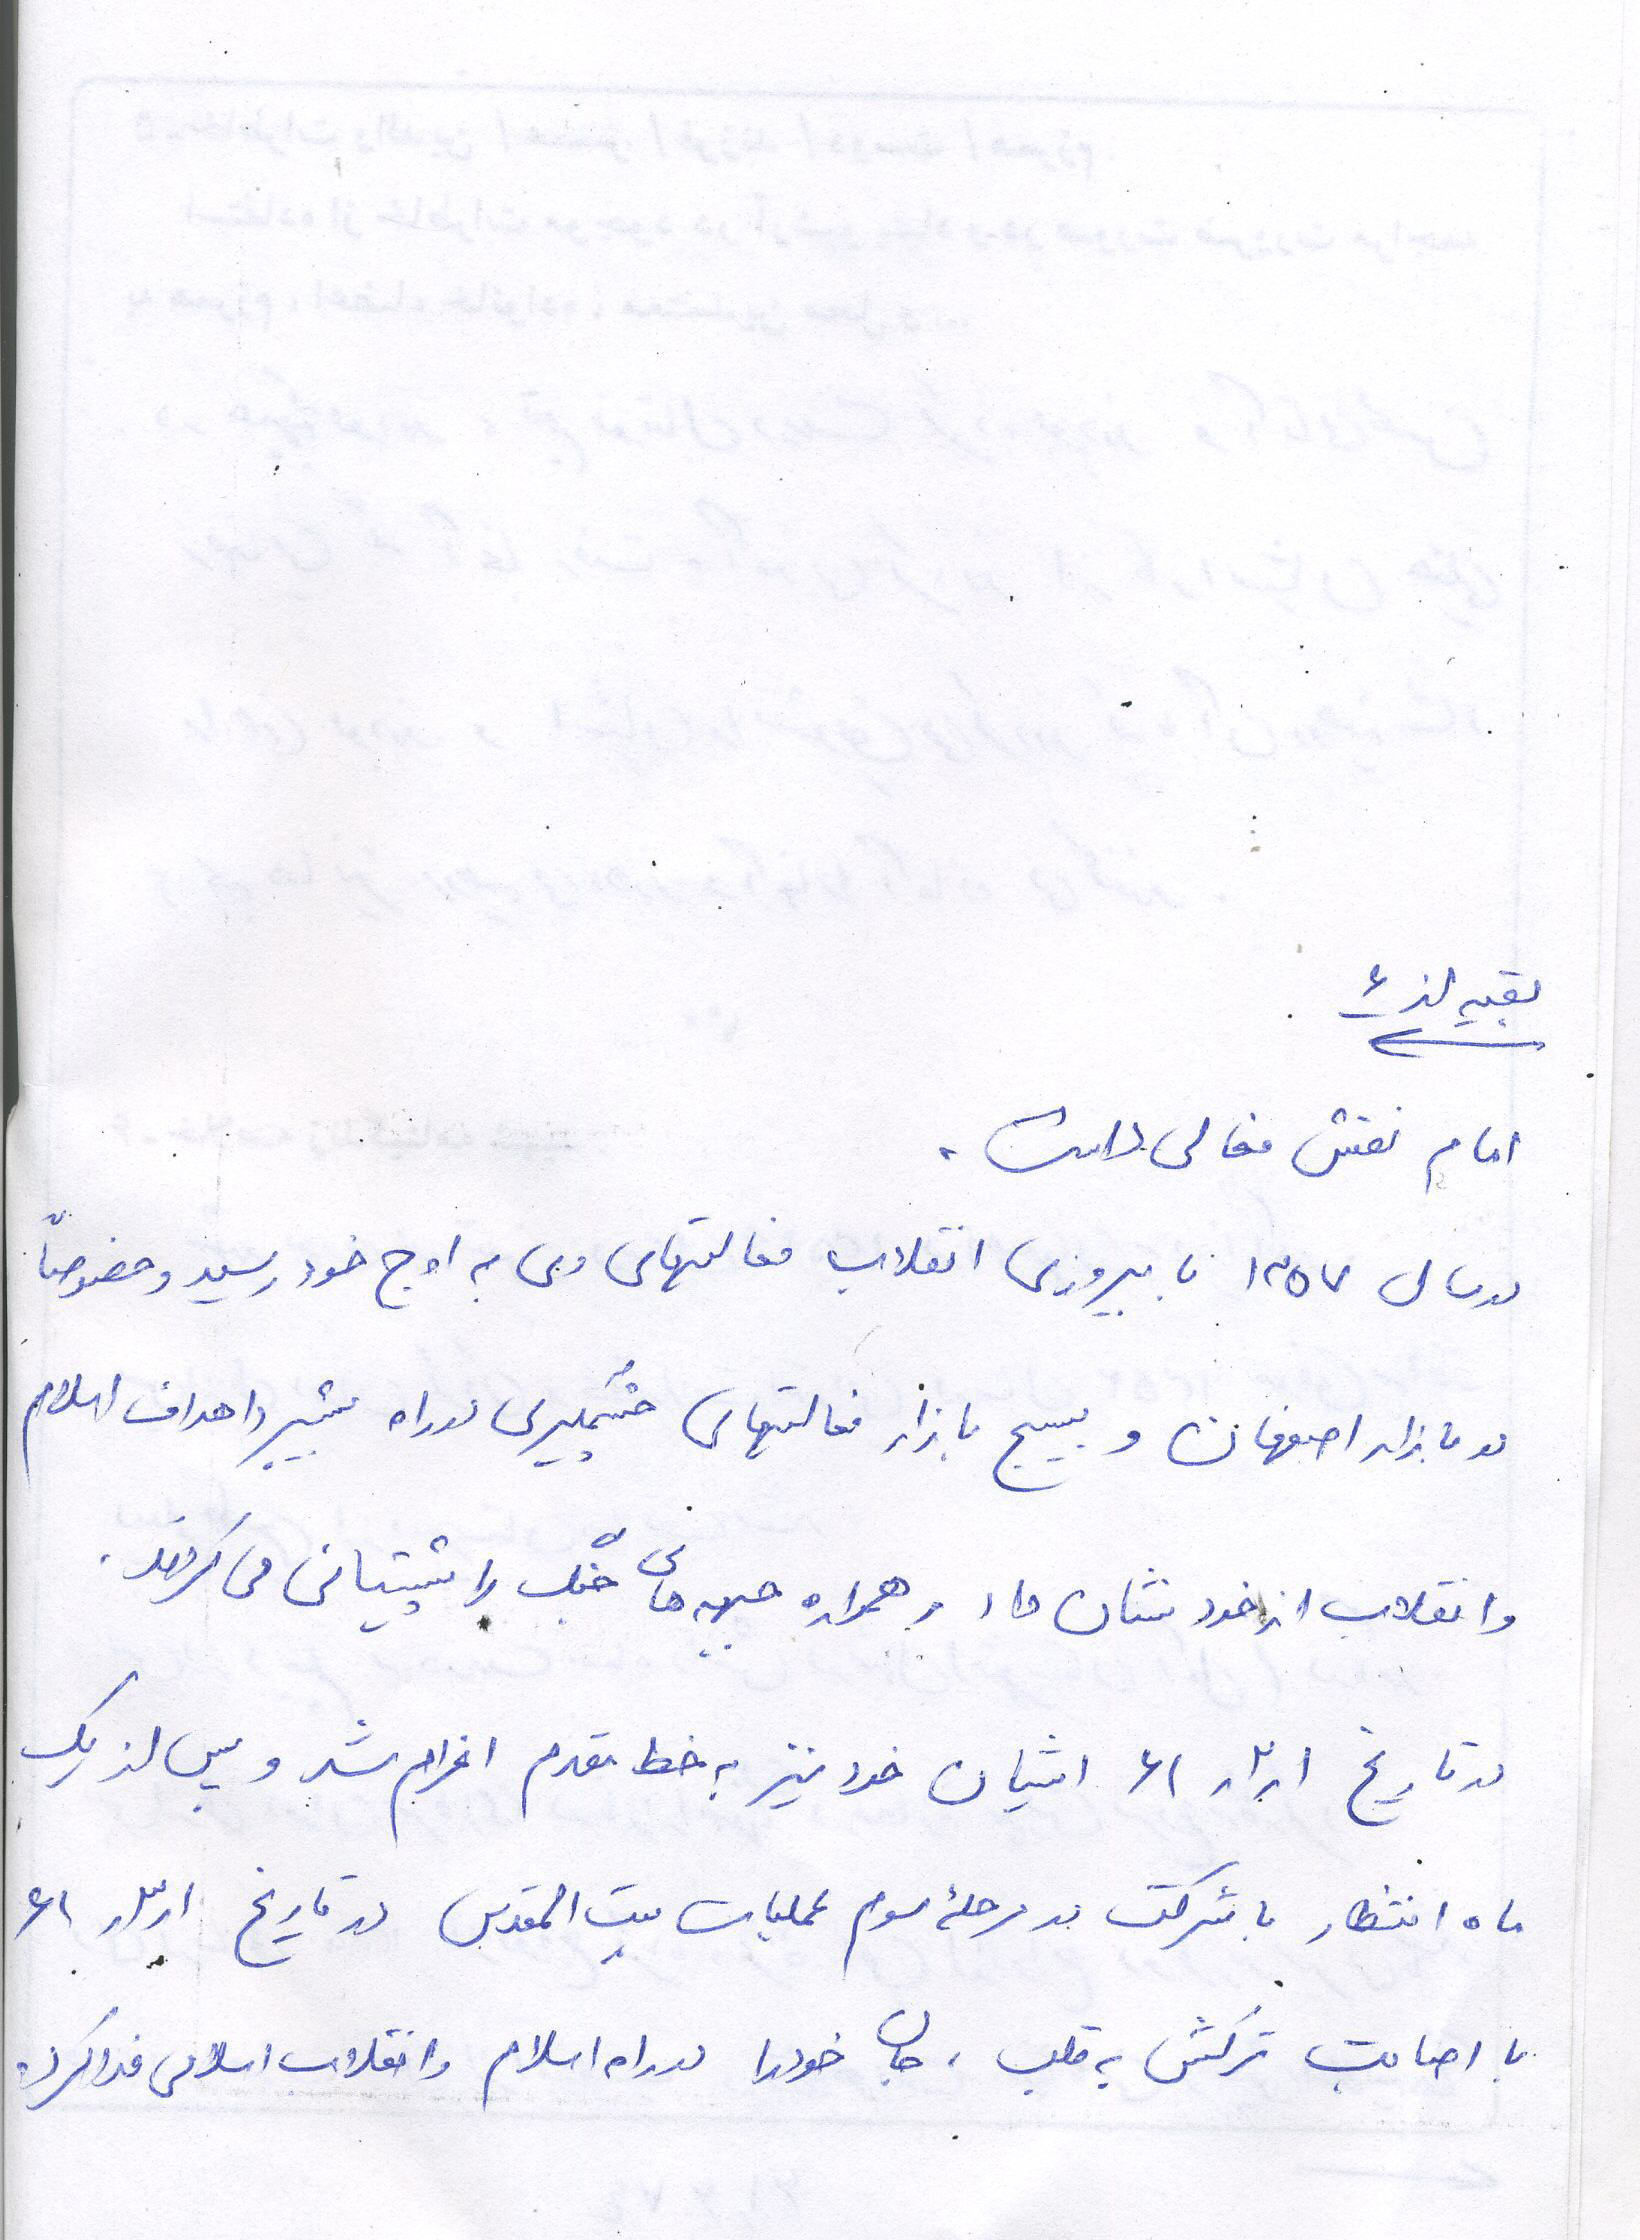 بقیه از ۶
امام نقش فعالی داشت.
در سال ۱۳۵۷ با پیروزی انقلاب فعالیتهای وی به اوج خود رسید و خصوصاً
در بازار اصفهان و بسیج بازار فعالیتهای چشمگیری در راه پیشبرد اهداف اسلام
و انقلاب از خود نشان داد و همواره جبهه های جنگ را پشتیبانی می کردند.
در تاریخ ۶۱ ایشان خود نیز به خط مقدم اعزام شد و پس از یک
ماه انتظار با شرکت در مرحلۀ سوم عملیات بیت المقدس در تاریخ ۶۱
با اصابت ترکش به قلب، جان خود را در راه اسلام و انقلاب اسلامی فدا کرد